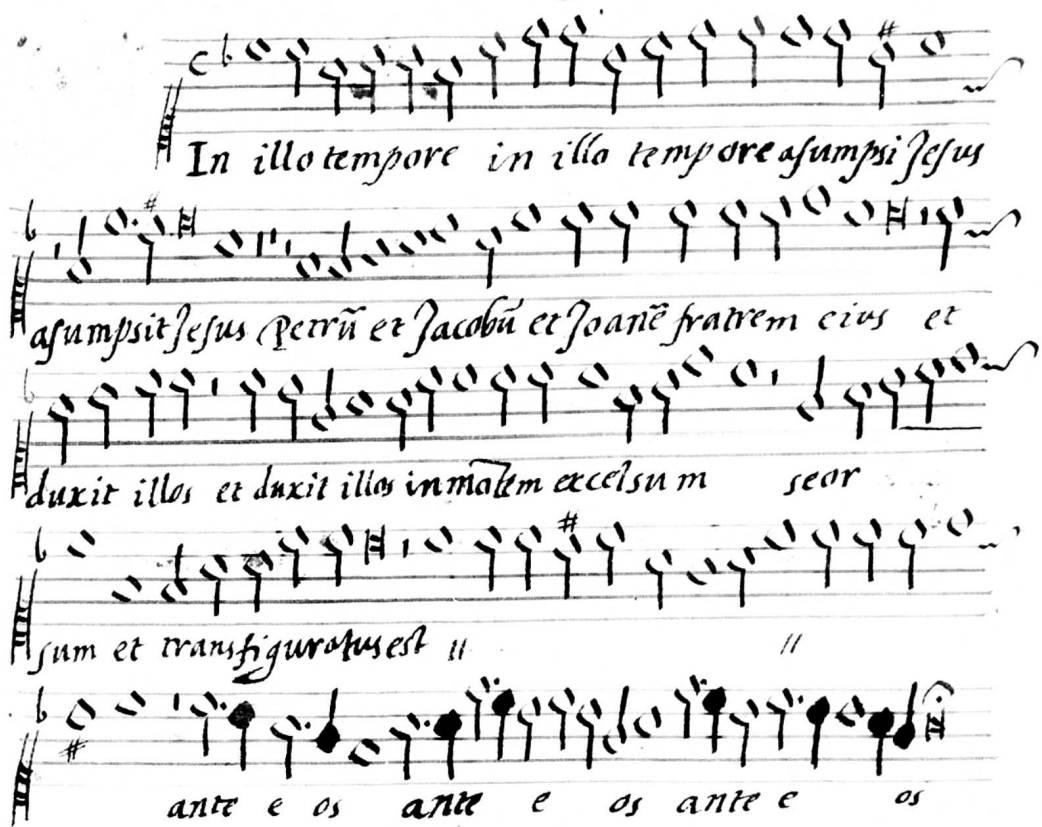 In illo tempore in illo tempore asumpsi Jesus
asumpsit Jesus Petrū et Jacobū et Joanē fratrem eius et
duxit illos et duxit illos in mōtem excelsum seor
sum et transfiguratus est 〃 〃
ante e os ante e os ante e os